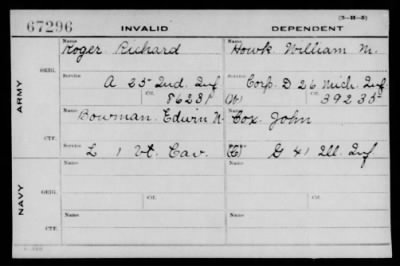 (3-H-5)
67296 INVALID DEPENDENT
Name Name
Roger Richard Howk William M.
ORIG. Service Service
A 25 Ind. Inf Corp. D 26 Mich. Inf
Ctf. 86231 (W) Ctf. 39235
ARMY
Name Name
Bowman, Edwin N. Cox John
CTF. Service Service
L 1 Vt. Cav. G 41 Ill. Inf
Name Name
ORIG. Service Service
Ctf. Ctf.
NAVY
Name Name
CTF. Service Service